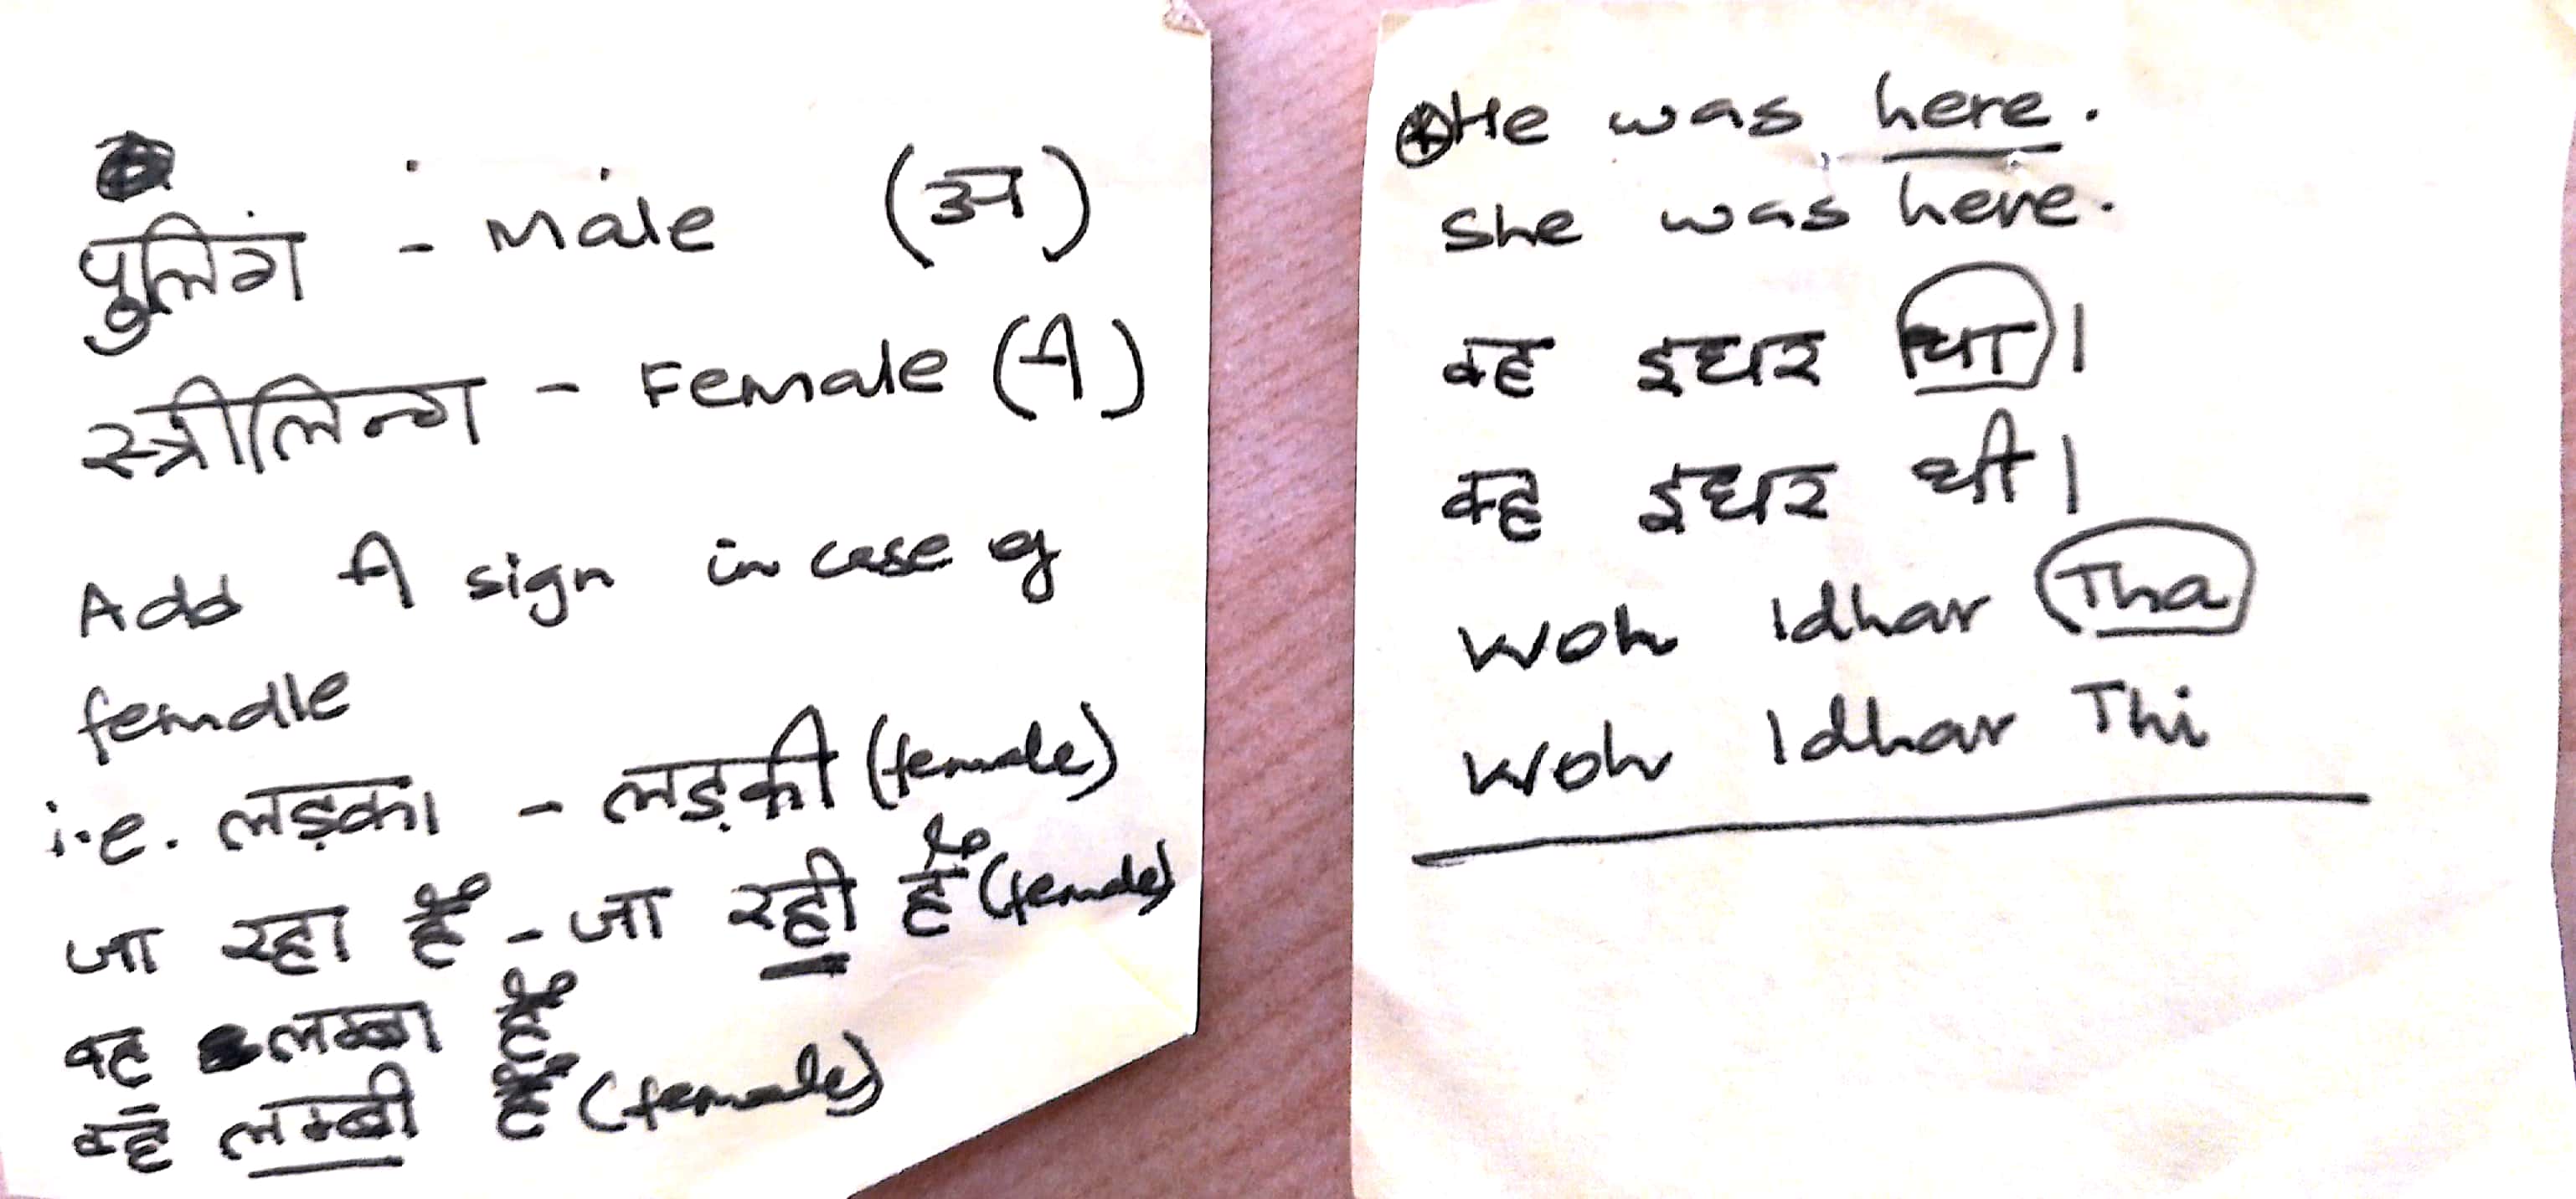 पुलिंग - Male (अ)
स्त्रीलिन्ग - Female (ी)
Add ी sign in case of
female
i.e. लड़का - लड़की (female)
जा रहा हैं - जा रही हैं (female)
वह लम्बा हैं
वह लम्बी हैं (female)
He was here.
She was here.
वह इधर था।
वह इधर थी।
Woh Idhar Tha
Woh Idhar Thi